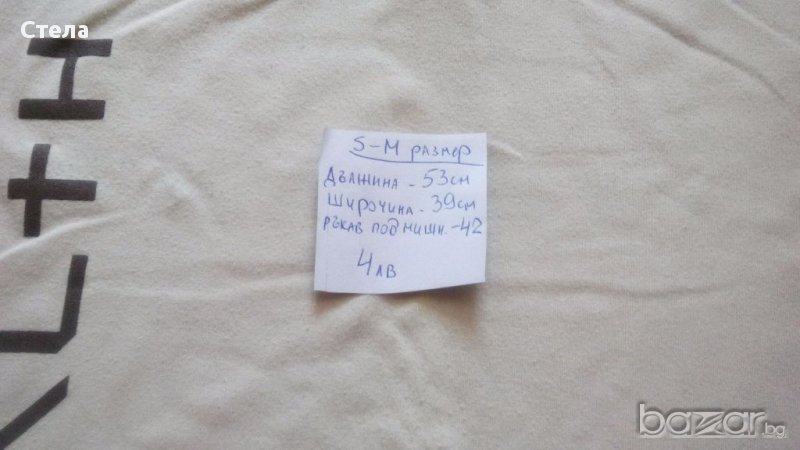 Стела
S-M размер
Дължина - 53см
Широчина - 39см
Ръкав под мишн. -42
4лв
bazar.bg